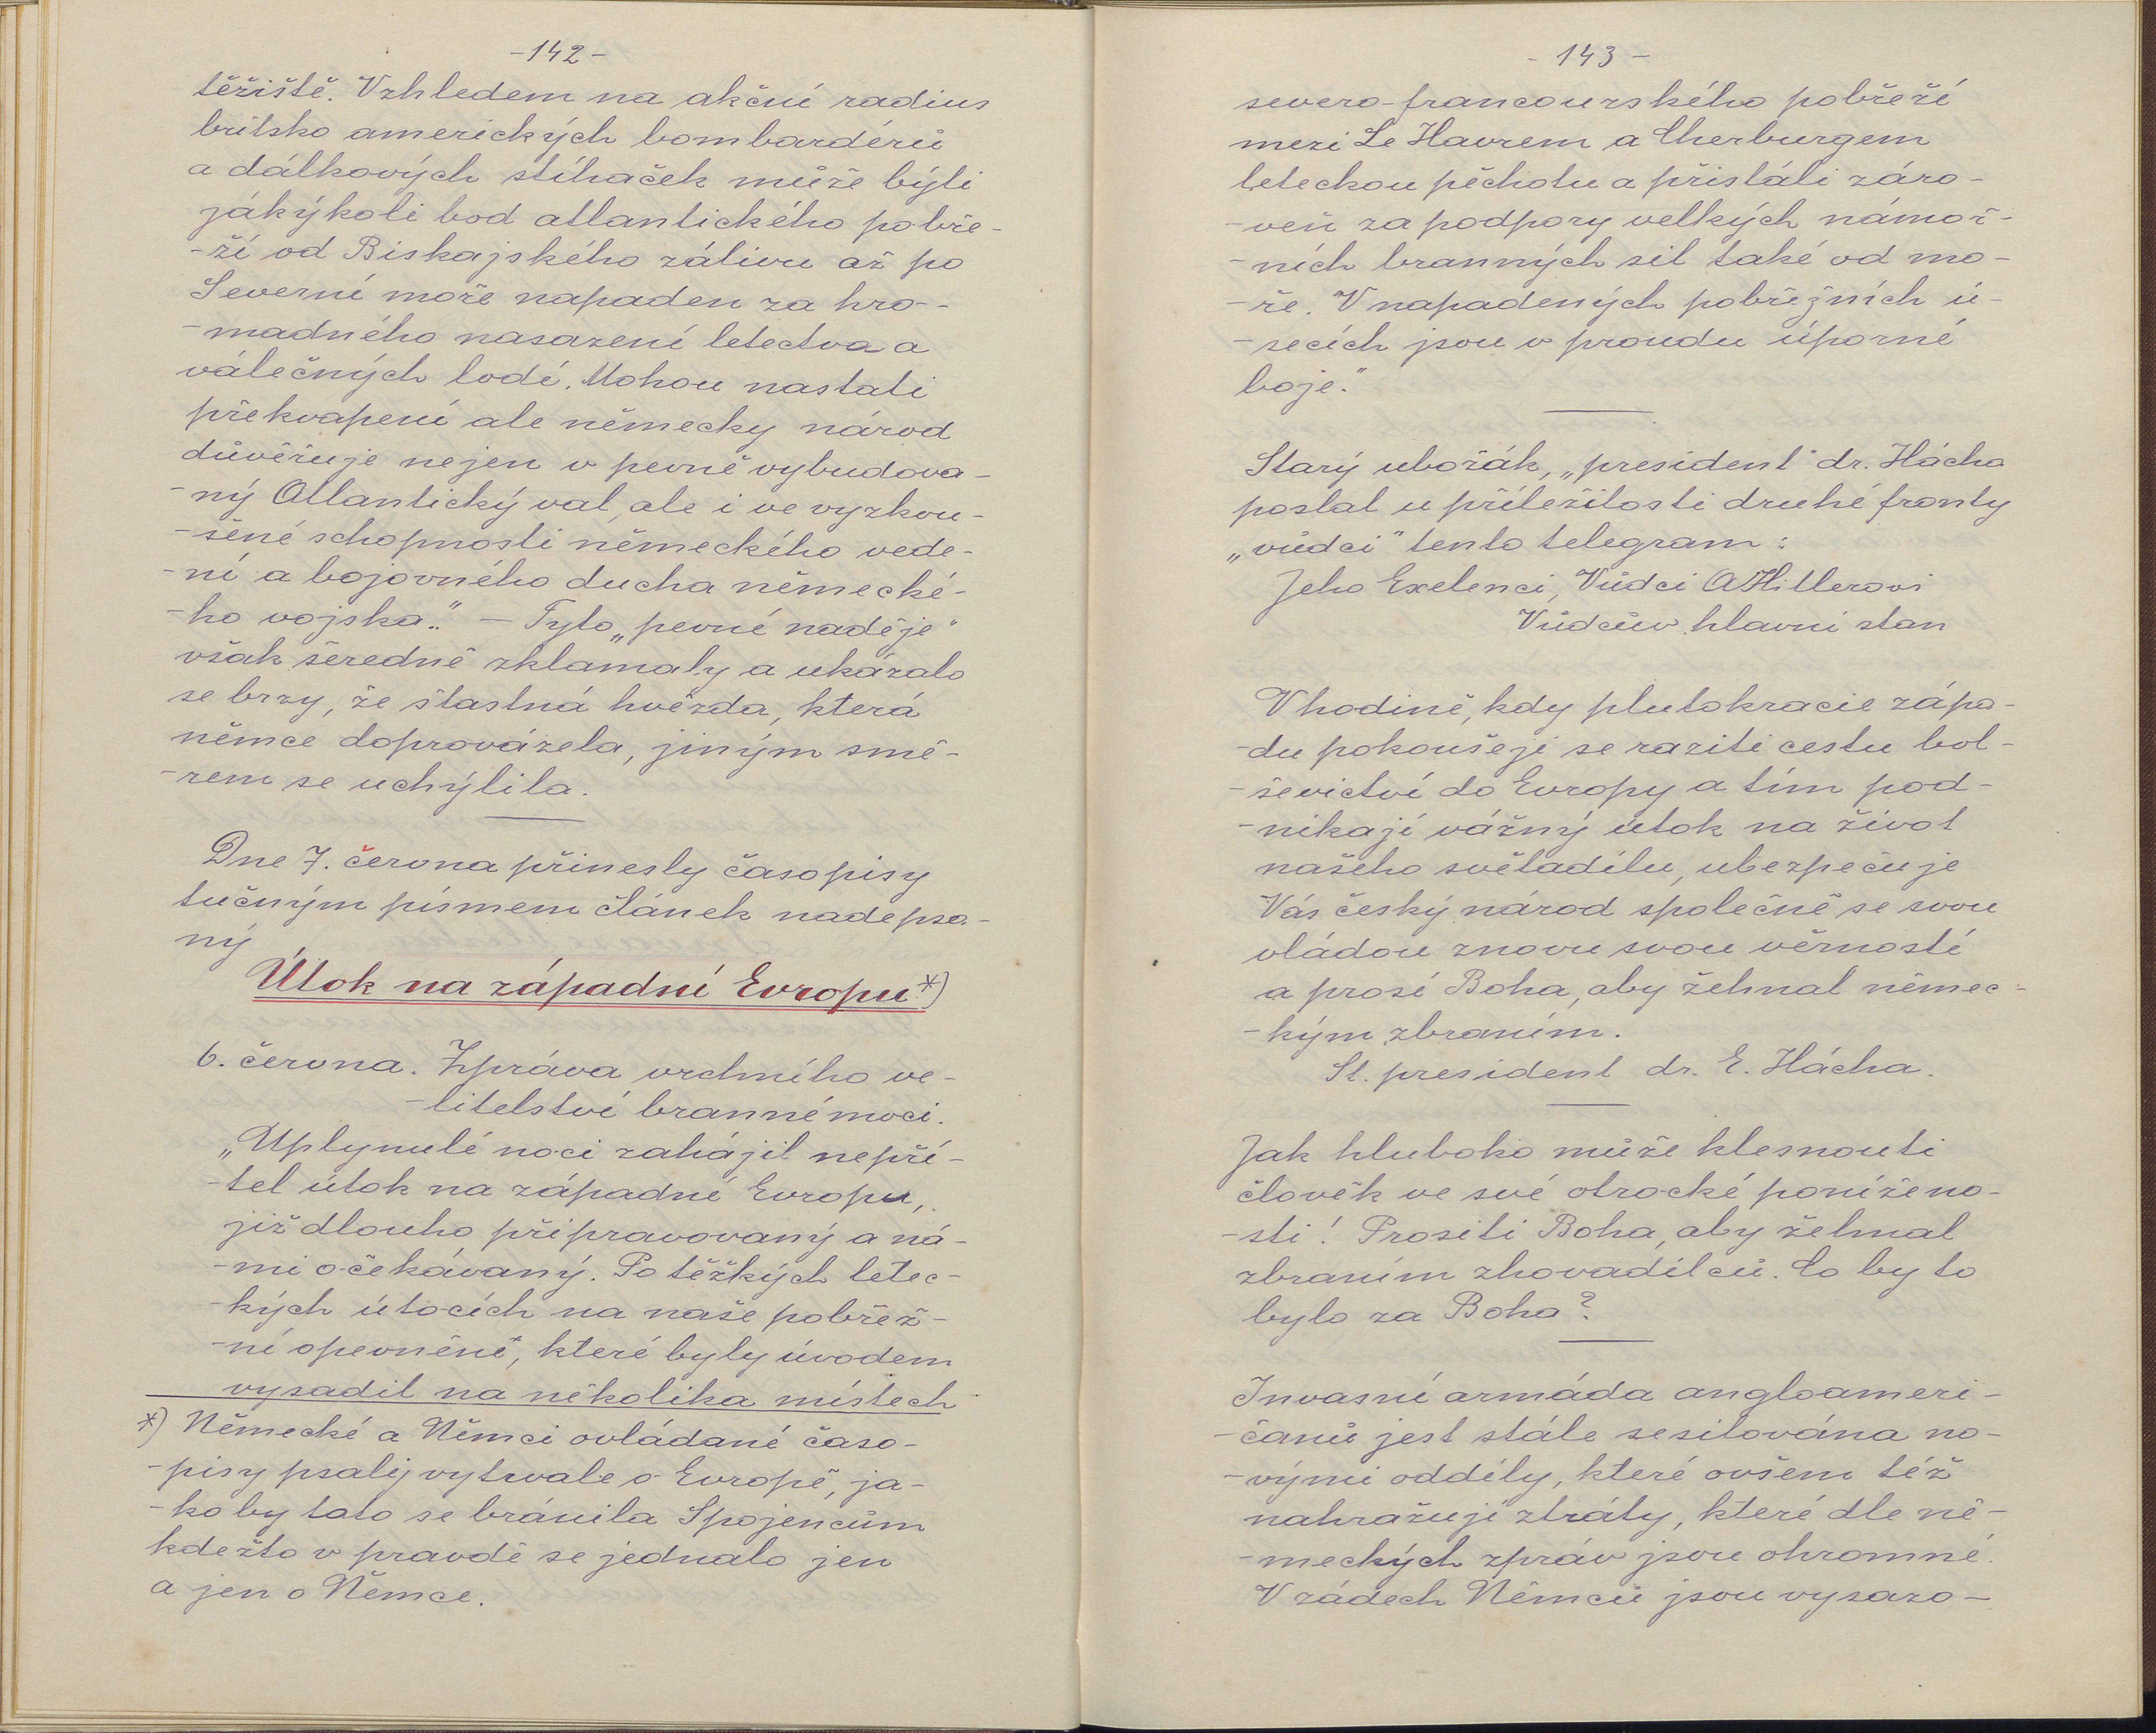 -142-
těžiště. Vzhledem na akční radius
britsko amerických bombardérů
a dálkových stíhaček může býti
jákýkoli bod atlantického pobře-
-ží od Biskajského zálivu až po
Severní moře napaden za hro-
-madného nasazení letectva a
válečných lodí. Mohou nastati
překvapení ale německy národ
důvěřuje nejen v pevně vybudova-
-ný Atlantický val, ale i ve vyzkou-
-šené schopnosti německého vede-
-ní a bojovného ducha německé-
-ho vojska." - Tyto „pevné naděje"
však šeredně zklamaly a ukázalo
se brzy, že šťastná hvězda, která
němce doprovázela, jiným smě-
-rem se uchýlila.
Dne 7. června přinesly časopisy
tučným písmem článek nadepsa-
ný
Útok na západní Evropu *)
6. června. Zpráva vrchního ve-
-litelství branné moci.
„Uplynulé noci zahájil nepří-
-tel útok na západní Evropu,
již dlouho připravovaný a ná-
-mi očekávaný. Po těžkých letec-
-kých útocích na naše pobřež-
-ní opevnění, které byly úvodem
vysadil na několika místech
*) Německé a Němci ovládané časo-
-pisy psaly vytrvale o Evropě, ja-
-ko by tato se bránila Spojencům
kdežto v pravdě se jednalo jen
a jen o Němce.
- 143 -
severo-francouzského pobřeží
mezi Le Havrem a Cherburgem
leteckou pěchotu a přistáli záro-
-veň za podpory velkých námoř-
-ních branných sil také od mo-
-ře. V napadených pobřežních ú-
-secích jsou v proudu úporné
boje."
Starý ubožák, „president" dr. Hácha
poslal u příležitosti druhé fronty
„vůdci" tento telegram:
Jeho Exelenci, Vůdci A Hitlerovi
Vůdcův hlavní stan
V hodině, kdy plutokracie zápa-
-du pokoušejí se raziti cestu bol-
-ševictví do Evropy a tím pod-
-nikají vážný útok na život
našeho světadílu, ubezpečuje
Vás český národ společně se svou
vládou znovu svou věrností
a prosí Boha, aby žehnal němec-
-kým zbraním.
St. president dr. E. Hácha.
Jak hluboko může klesnouti
člověk ve své otrocké poníženo-
-sti! Prositi Boha, aby žehnal
zbraním zhovadilců. Co by to
bylo za Boha?
Invasní armáda angloameri-
-čanů jest stále sesilována no-
-vými oddíly, které ovšem též
nahražují ztráty, které dle ně-
-meckých zpráv jsou ohromné.
V zádech Němců jsou vysazo-